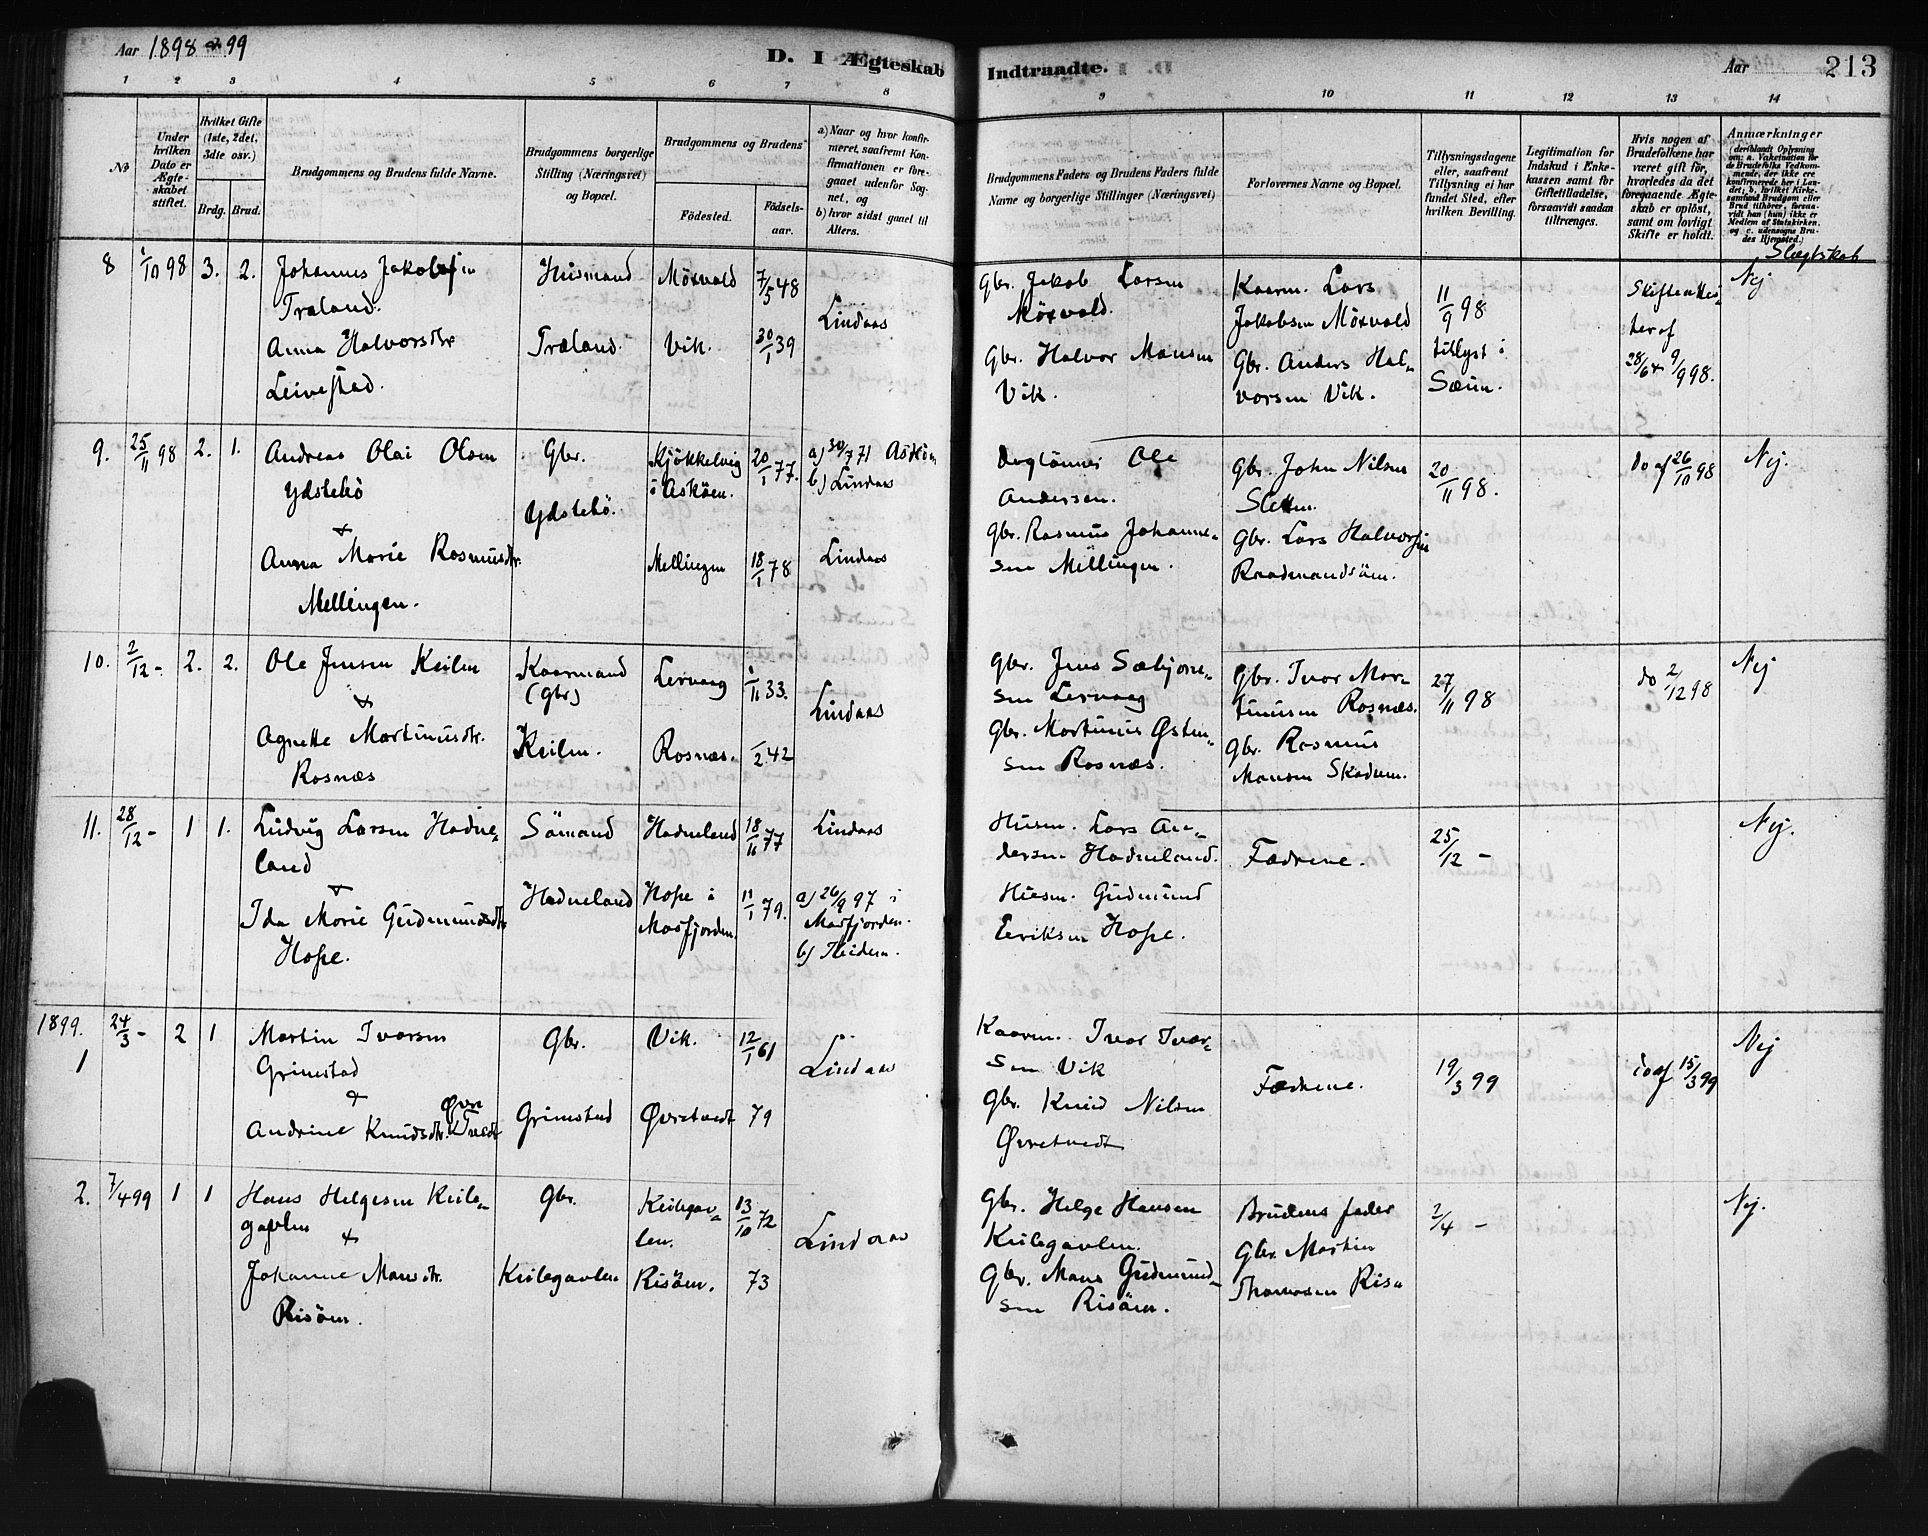 Aar 1898 & 99
D. I Ægteskab
Indtraadte.
Aar
213
1 2 3 4 5 6 7 8 9 10 11 12 13 14
No
Under hvilken Dato er Ægteskabet stiftet.
Hvilket Gifte (1ste, 2det, 3die osv.)
Brdg. Brud.
Brudgommens og Brudens fulde Navne.
Brudgommens borgerlige Stilling (Næringsvei) og Bopæl.
Brudgommens og Brudens
Fødested.
Fødselsaar.
a) Naar og hvor konfirmeret, saafremt Konfirmationen er foregaaet udenfor Sognet, og
b) hvor sidst gaaet til Alters.
Brudgommens Faders og Brudens Faders fulde Navne og borgerlige Stillinger (Næringsvei)
Forlovernes Navne og Bopæl.
Tillysningsdagene eller, saafremt Tillysning ei har fundet Sted, efter hvilken Bevilling.
Legitimation for Indskud i Enkekassen samt for Giftetilladelse, forsaavidt saadan tiltrænges.
Hvis nogen af Brudefolkene har været gift før, hvorledes da det foregaaende Ægteskab er opløst, samt om lovligt Skifte er holdt.
Anmærkninger
(deriblandt Oplysning om: a. Vakcination for de Brudefolks Vedkommende, der ikke ere konfirmerede her i Landet; b. hvilket Kirkesamfund Brudgom eller Brud tilhører, forsaavidt han (hun) ikke er Medlem af Statskirken, og c. udensogns Brudes Hjemsted.)
Slægtskab
8 1/10 98 3. 2.
Johannes Jakobsen
Træland.
Anna Halvorsdtr
Leivestad.
Husmand
Træland.
Møxvold 7/5 48
Vik. 30/1 39
Lindaas
Gbr. Jakob Larsen
Møxvold.
Gbr. Halvor Mansen
Vik.
Kaarm. Lars
Jakobsen Møxvold
Gbr. Anders Hal-
vorsen Vik.
11/9 98
tillyst i
Sæim.
Skifteattest
her af
28/6 & 9/9 98.
Nej
9. 25/11 98 2. 1.
Andreas Olai Olsen
Ydstebö
+
Anna Marie Rasmusdtr.
Mellingen.
Gbr.
Ydstebö.
Kjökkelvig
i Asköen. 20/1 77.
Mellingen 18/1 78
a) 30/7 71 Asköen
b) Lindaas
Lindaas
Ole
Andersen.
Gbr. Rasmus Johanne-
sen Mellingen.
Gbr. John Nilsen
Sletten.
Gbr. Lars Halvorsen
Raadmandsöen.
20/11 98.
do af 26/10 98
Nej.
10. 2/12 - 2. 2.
Ole Jensen Keilen
+
Agnette Martinusdtr.
Rosnæs
Kaarmand
(Gbr)
Keilen.
Lervaag 1/11 33.
Rosnæs. 1/2 42
Lindaas
Gbr. Jens Sæbjörn-
sen Lervaag
Gbr. Martinus Østen-
sen Rosnæs.
Gbr. Ivar Mar-
tinusen Rosnæs.
Gbr. Rasmus
Monsen Skodven.
27/11 98
do 2/12 98
Nej
11. 28/12 - 1 1.
Ludvig Larsen Hodne-
land
+
Ida Marie Gudmundsdtr
Hope.
Sömand
Hodneland
Hodneland 18/11 77
Hope i
Masfjorden. 11/1 79.
Lindaas
a) 26/9 97 i
Masfjorden.
b) Heiden.
Husm. Lars An-
dersen Hodneland.
Husm. Gudmund
Eeriksen Hope.
Fædrene.
25/12 -
Nej.
1899.
1 24/3 - 2 1
Martin Ivarsen
Grimstad
+
Andrine Knudsdtr. Øvre
Tvedt
Gbr.
Grimstad
Vik. 12/1 61
Øvretvedt 79
Lindaas
Kaarm. Ivar Ivar-
sen Vik
Gbr. Knud Nilsen
Øvretvedt
Fædrene.
19/3 99
do af 15/3 99
Nej
2. 7/4 99 1 1
Hans Helgesen Keile-
gavlen
+
Johanne Mansdtr.
Risöen.
Gbr.
Keilegavlen
Keilegav-
len. 13/10 72
Risöen. 73
Lindaas
Gbr. Helge Hansen
Keilegavlen.
Gbr. Mans Gudmund-
sen Risöen.
Brudens fader
Gbr. Martin
Thomasen Risö
2/4 -
Nej.